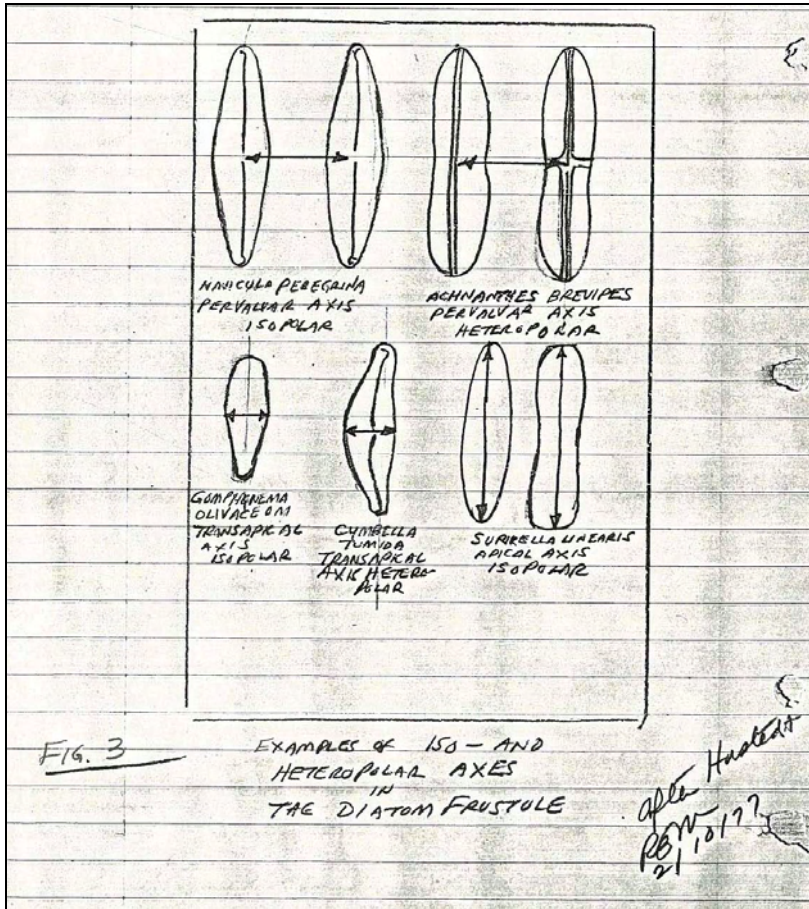 NAVICULA PEREGRINA
PERVALVAR AXIS
ISOPOLAR
ACHNANTHES BREVIPES
PERVALVAR AXIS
HETEROPOLAR
GOMPHENEMA
OLIVACEOM
TRANSAPICAL
AXIS
ISOPOLAR
CYMBELLA
TUMIDA
TRANSAPICAL
AXIS HETERO-
POLAR
SURIRELLA LINEARIS
APICAL AXIS
ISOPOLAR
FIG. 3
EXAMPLES OF ISO- AND
HETEROPOLAR AXES
IN
THE DIATOM FRUSTULE
after Hustedt
2/10/77